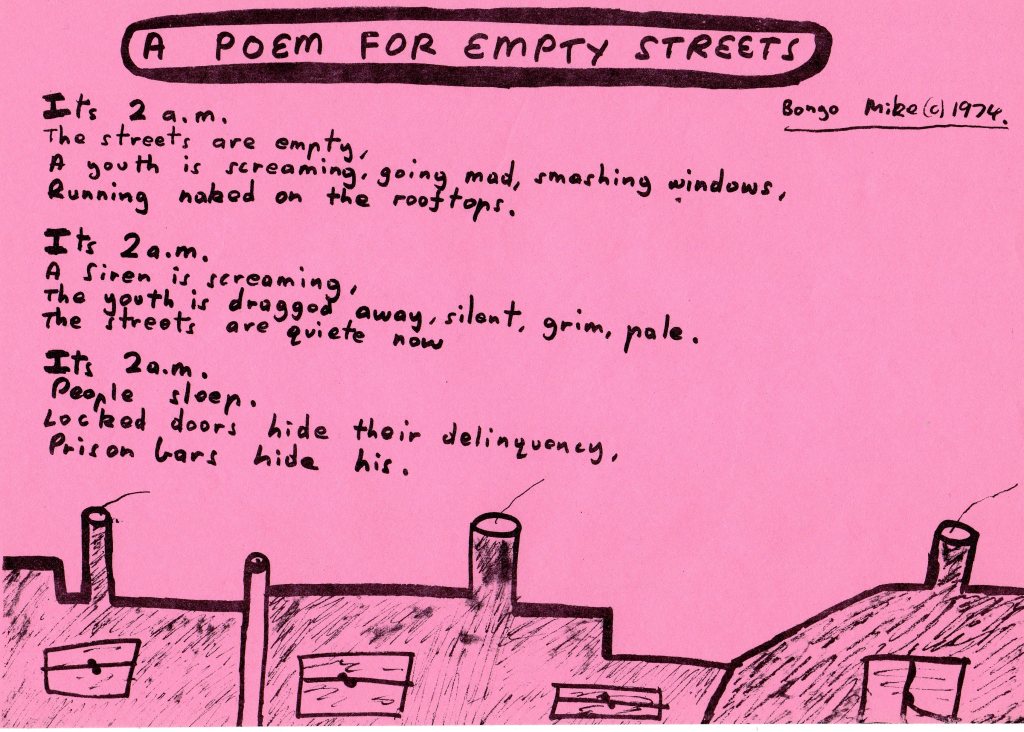 A POEM FOR EMPTY STREETS
Bongo Mike (c) 1974.
Its 2 a.m.
The streets are empty,
A youth is screaming, going mad, smashing windows,
Running naked on the rooftops.
Its 2 a.m.
A Siren is screaming,
The youth is dragged away, silent, grim, pale.
The streets are quiete now
Its 2 a.m.
People sleep.
Locked doors hide their delinquency,
Prison bars hide his.